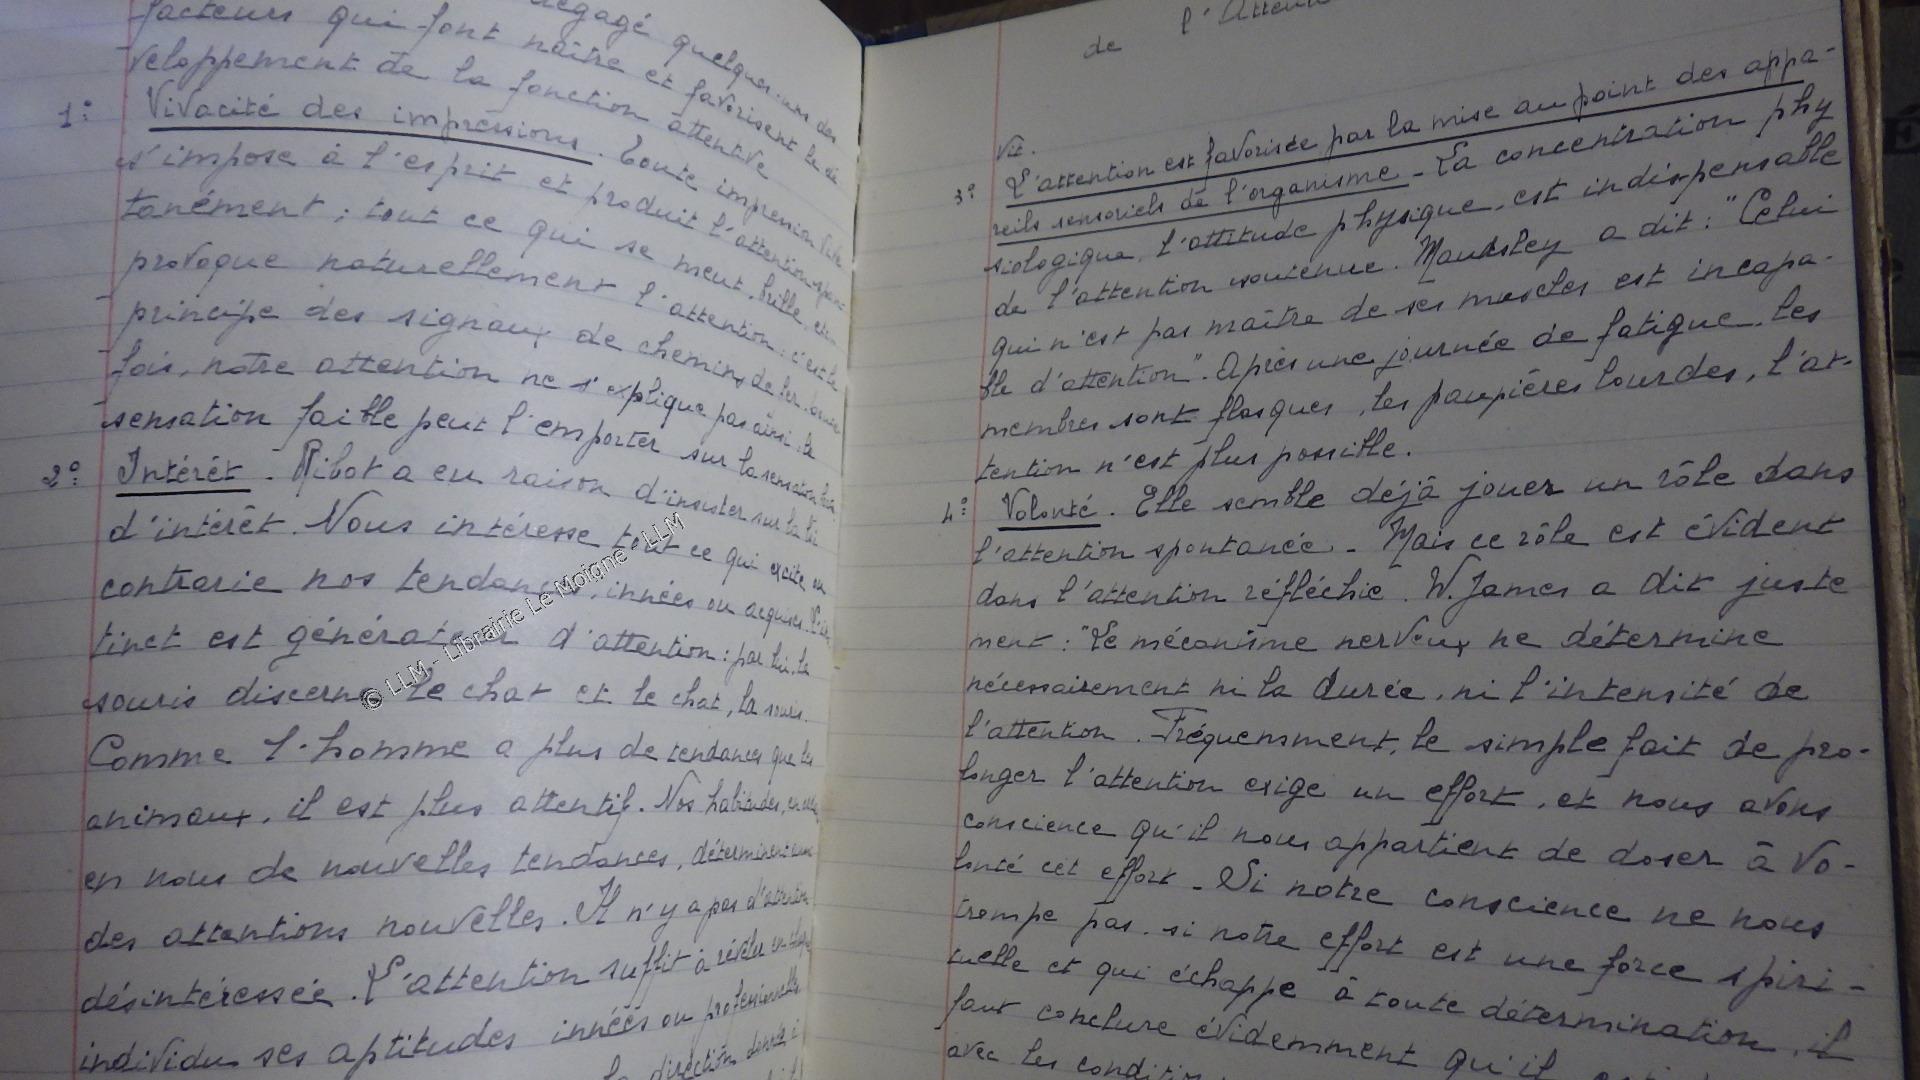 dégagé quelques-uns des
facteurs qui font naître et favorisent le dé
veloppement de la fonction attentive
1º Vivacité des impressions. Toute impression vive
s'impose à l'esprit et produit l'attention spon
tanément ; tout ce qui se meut, brille, etc.
provoque naturellement l'attention : c'est le
principe des signaux de chemins de fer.
fois, notre attention ne s'explique pas ainsi, la
sensation faible peut l'emporter sur la sensation
2º Intérêt. Ribot a eu raison d'insister sur la loi
d'intérêt. Nous intéresse tout ce qui excite ou
contrarie nos tendances, innées ou acquises. L'ins
tinct est générateur d'attention : par lui, la
souris discerne le chat et le chat, la souris.
Comme l'homme a plus de tendances que les
animaux, il est plus attentif. Nos habitudes,
en nous de nouvelles tendances, déterminent
des attentions nouvelles. Il n'y a pas d'attention
désintéressée. L'attention suffit à révéler
individu ses aptitudes innées ou professionnelles
la direction
de l'Attent
vit.
3º L'attention est favorisée par la mise au point des appa-
reils sensoriels de l'organisme - La concentration phy
siologique, l'attitude physique, est indispensable
de l'attention soutenue. Maudsley a dit : "Celui
qui n'est pas maître de ses muscles est incapa-
ble d'attention". Après une journée de fatigue, les
membres sont flasques, les paupières lourdes, l'at-
tention n'est plus possible.
4º Volonté. Elle semble déjà jouer un rôle dans
l'attention spontanée - Mais ce rôle est évident
dans l'attention réfléchie. W. James a dit juste
ment : "Le mécanisme nerveux ne détermine
nécessairement ni la durée, ni l'intensité de
l'attention. Fréquemment, le simple fait de pro-
longer l'attention exige un effort, et nous avons
conscience qu'il nous appartient de doser à vo-
lonté cet effort - Si notre conscience ne nous
trompe pas, si notre effort est une force spiri-
tuelle et qui échappe à toute détermination, il
faut conclure évidemment qu'il
avec les conditions
© LLM - Librairie Le Moigne - LLM